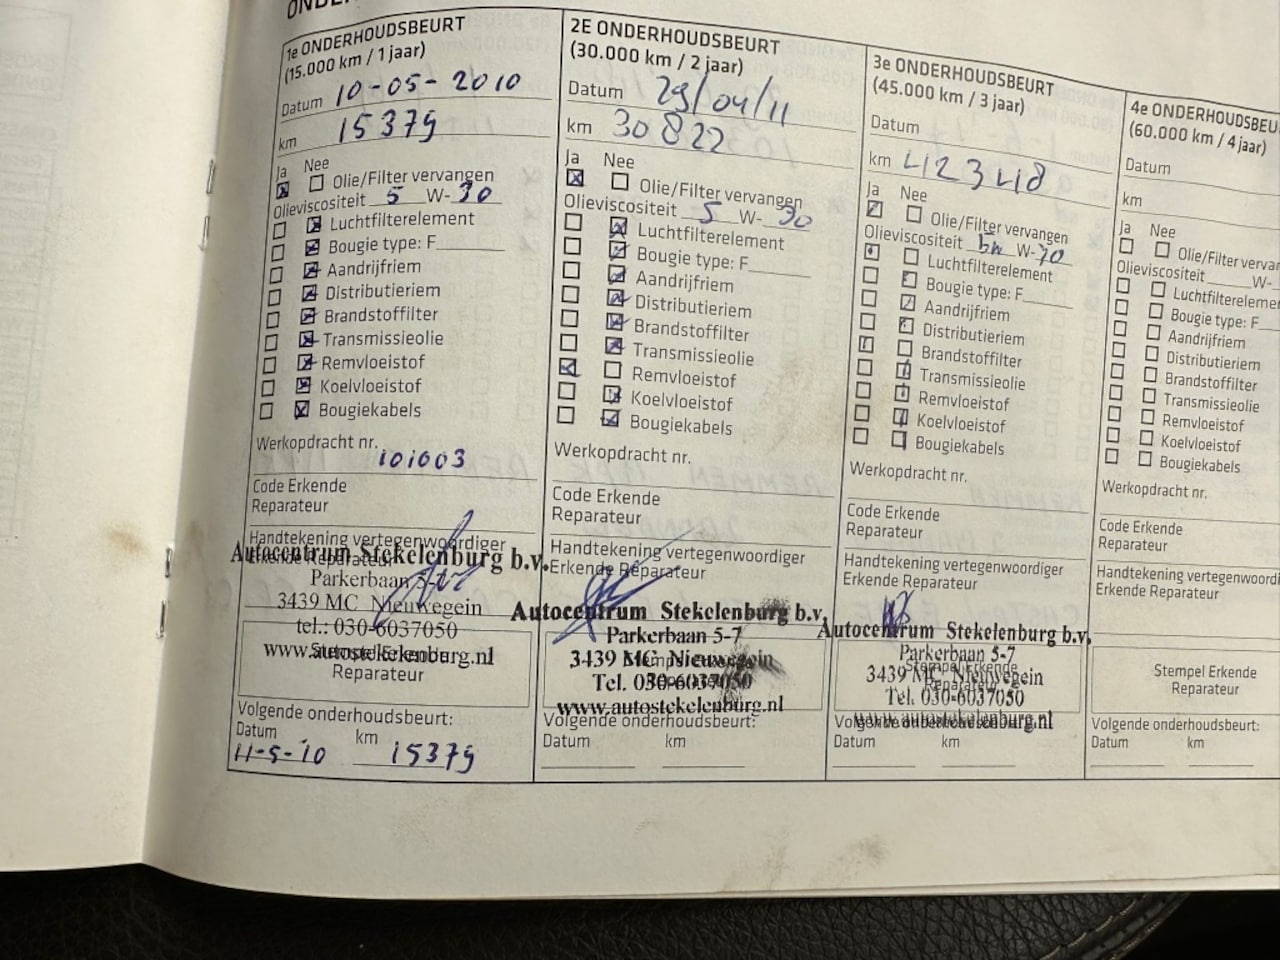 1e ONDERHOUDSBEURT
(15.000 km / 1 jaar)
Datum 10-05-2010
km 15379
Ja Nee
Olie/Filter vervangen
Olieviscositeit 5 W- 30
Luchtfilterelement
Bougie type: F
Aandrijfriem
Distributieriem
Brandstoffilter
Transmissieolie
Remvloeistof
Koelvloeistof
Bougiekabels
Werkopdracht nr.
101003
Code Erkende
Reparateur
Handtekening vertegenwoordiger
Erkende Reparateur
Autocentrum Stekelenburg b.v.
Parkerbaan 5-7
3439 MC Nieuwegein
tel.: 030-6037050
www.autostekelenburg.nl
Stempel Erkende
Reparateur
Volgende onderhoudsbeurt:
Datum km
11-5-10 15379
2E ONDERHOUDSBEURT
(30.000 km / 2 jaar)
Datum 29/04/11
km 30822
Ja Nee
Olie/Filter vervangen
Olieviscositeit 5 W- 30
Luchtfilterelement
Bougie type: F
Aandrijfriem
Distributieriem
Brandstoffilter
Transmissieolie
Remvloeistof
Koelvloeistof
Bougiekabels
Werkopdracht nr.
Code Erkende
Reparateur
Handtekening vertegenwoordiger
Erkende Reparateur
Autocentrum Stekelenburg b.v.
Parkerbaan 5-7
3439 MC Nieuwegein
Tel. 030-6037050
www.autostekelenburg.nl
Volgende onderhoudsbeurt:
Datum km
3e ONDERHOUDSBEURT
(45.000 km / 3 jaar)
Datum
km 42348
Ja Nee
Olie/Filter vervangen
Olieviscositeit 5w W-30
Luchtfilterelement
Bougie type: F
Aandrijfriem
Distributieriem
Brandstoffilter
Transmissieolie
Remvloeistof
Koelvloeistof
Bougiekabels
Werkopdracht nr.
Code Erkende
Reparateur
Handtekening vertegenwoordiger
Erkende Reparateur
Autocentrum Stekelenburg b.v.
Parkerbaan 5-7
Stempel Erkende
3439 MC Nieuwegein
Reparateur
Tel. 030-6037050
www.autostekelenburg.nl
Volgende onderhoudsbeurt:
Datum km
4e ONDERHOUDSBEU
(60.000 km / 4 jaar)
Datum
km
Ja Nee
Olie/Filter vervan
Olieviscositeit W-
Luchtfilterelemen
Bougie type: F
Aandrijfriem
Distributieriem
Brandstoffilter
Transmissieolie
Remvloeistof
Koelvloeistof
Bougiekabels
Werkopdracht nr.
Code Erkende
Reparateur
Handtekening vertegenwoordi
Erkende Reparateur
Stempel Erkende
Reparateur
Volgende onderhoudsbeurt:
Datum km